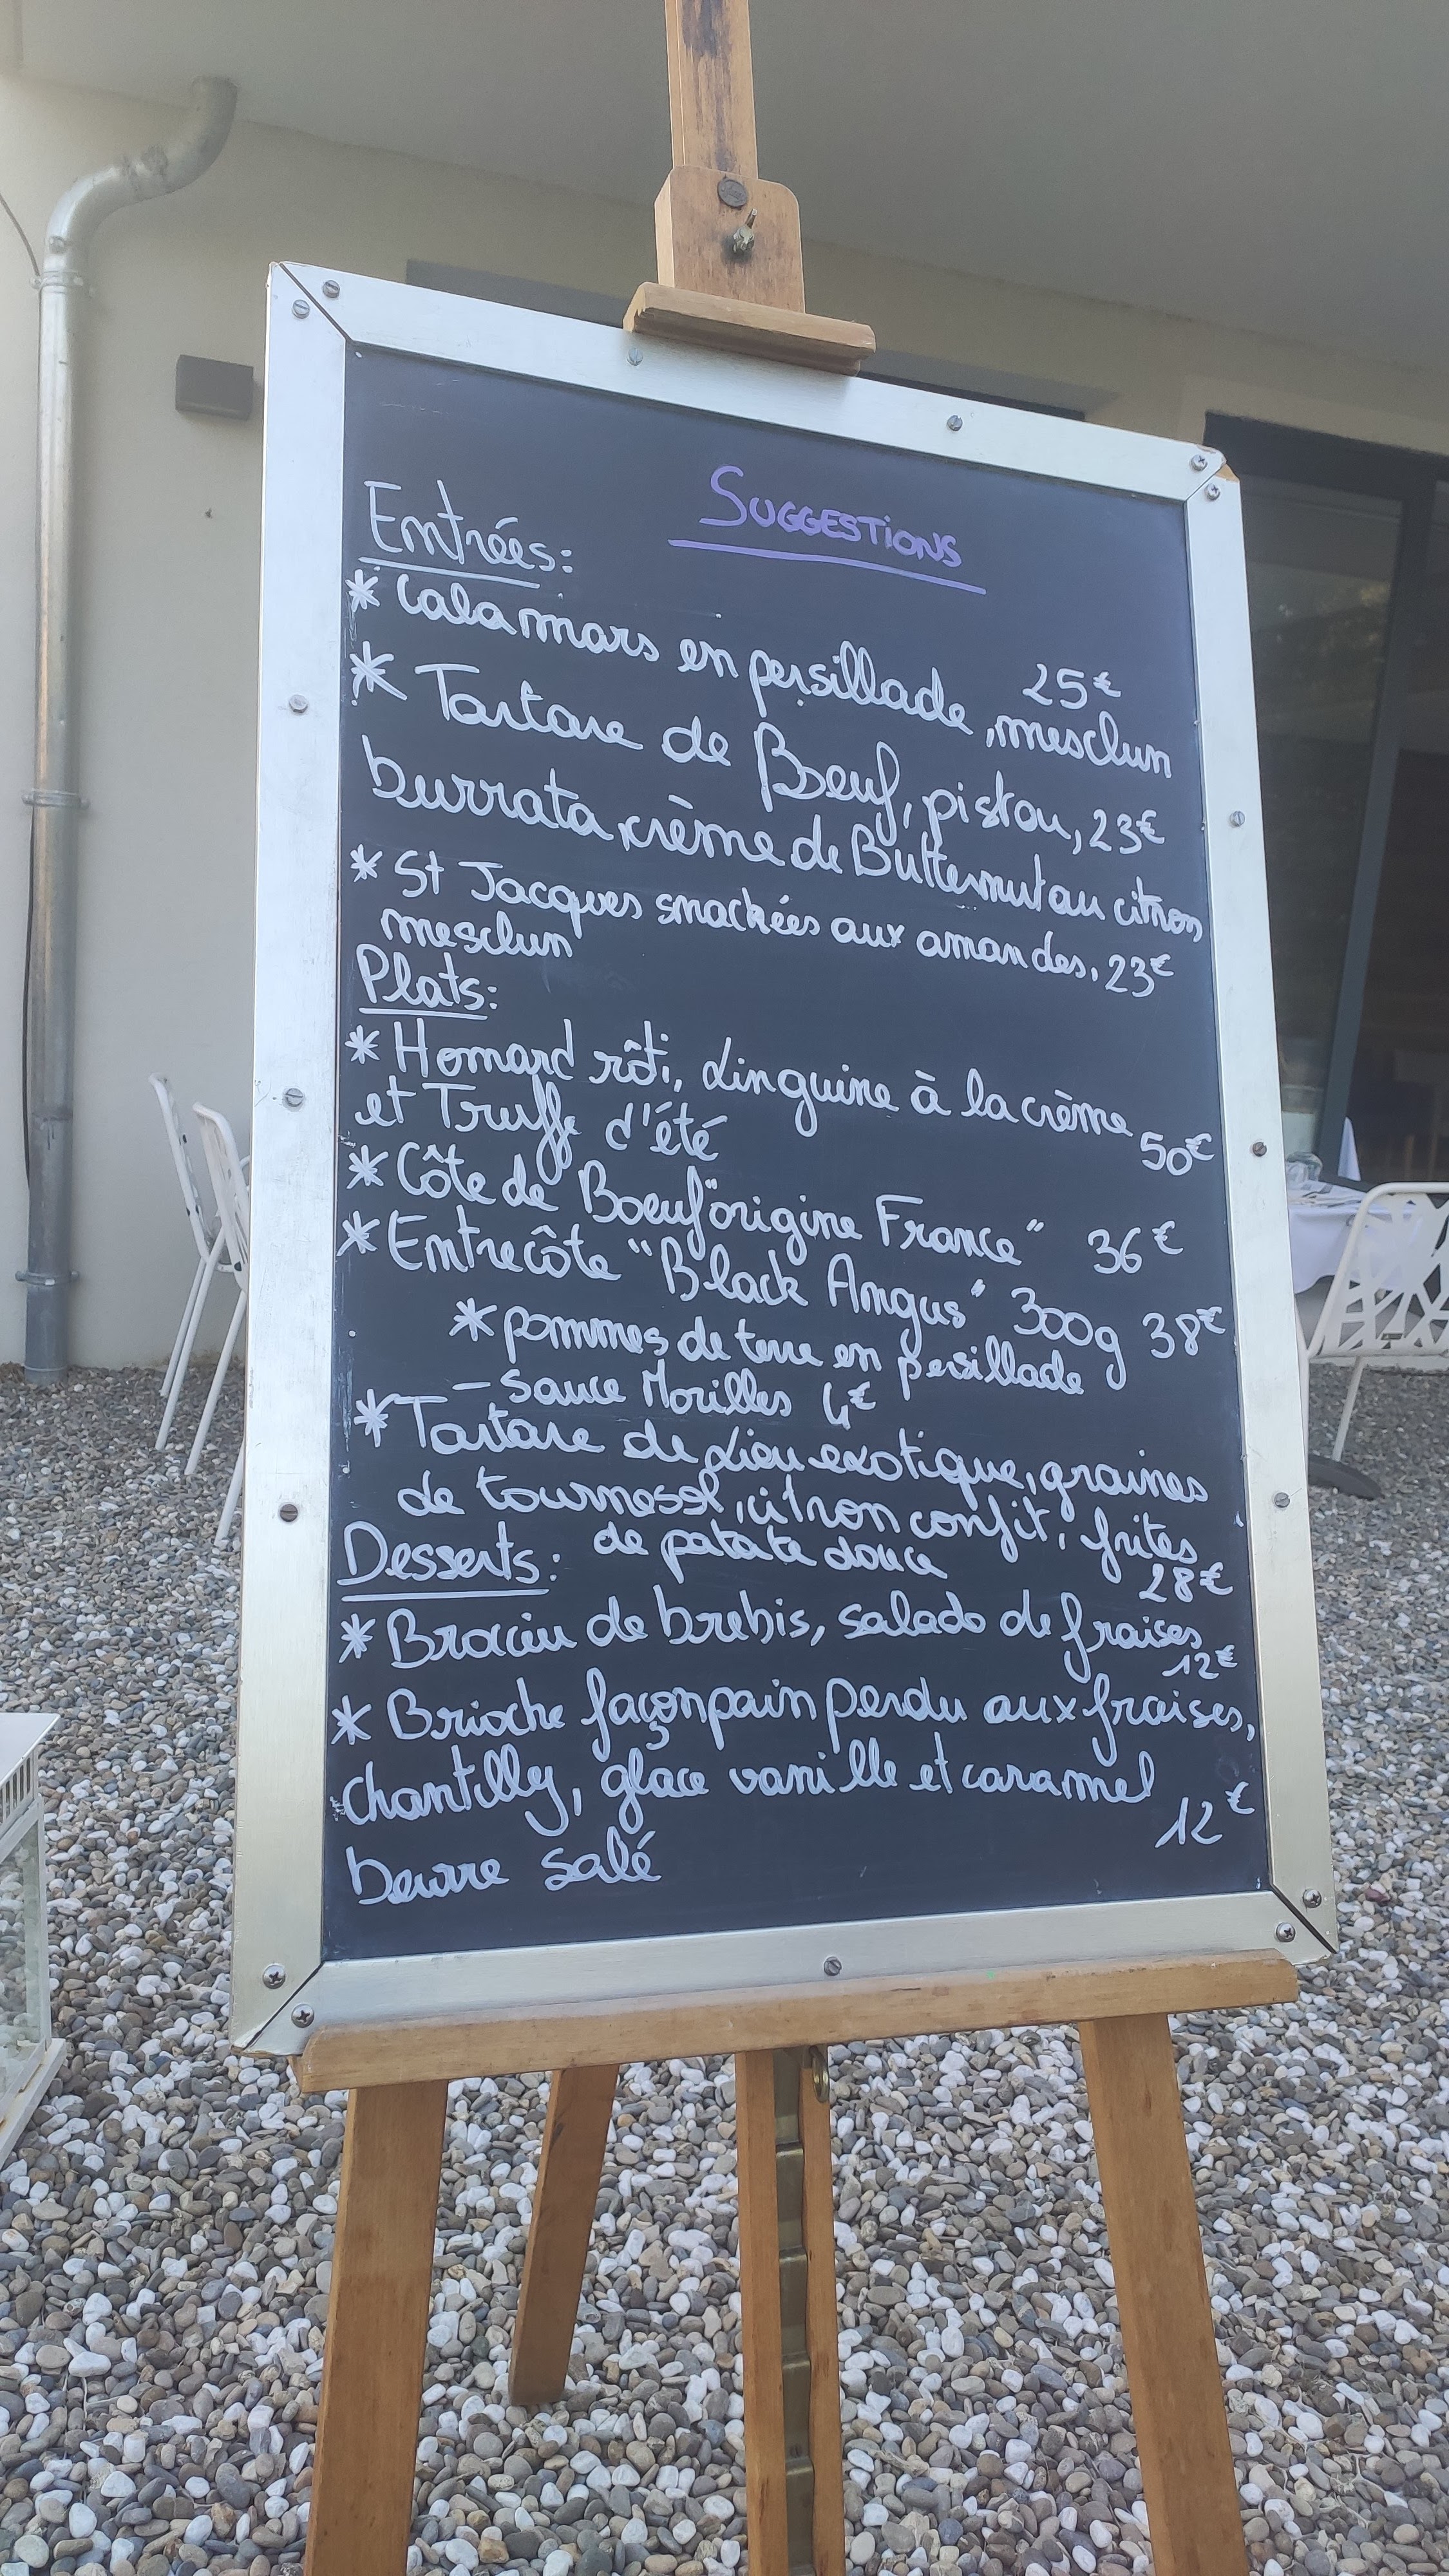 SUGGESTIONS
Entrées:
* Calamars en persillade, mesclun 25€
* Tartare de Boeuf, pistou, 23€
burrata, crème de Butternut au citron
* St Jacques smackées aux amandes, 23€
mesclun
Plats:
* Homard rôti, Linguine à la crème 50€
et Truffe d'été
* Côte de Boeuf "origine France" 36€
* Entrecôte "Black Angus" 300g 38€
* pommes de terre en persillade
- sauce Morilles 4€
* Tartare de Lieu exotique, graines
de tournesol, citron confit, frites
de patate douce 28€
Desserts:
* Brocciu de brebis, salade de fraises 12€
* Brioche façon pain perdu aux fraises,
chantilly, glace vanille et caramel 12€
beurre salé